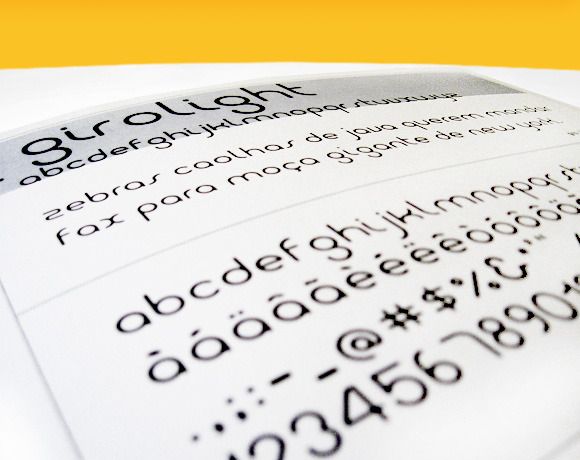 girolight
abcdefghijklmnopqrstuvwxyz
zebras caolhas de java querem mandar
fax para moça gigante de new york
abcdefghijklmnopqrst
àáäâãåèéëêòóôõö
.,:;--@#$%&
1234567890